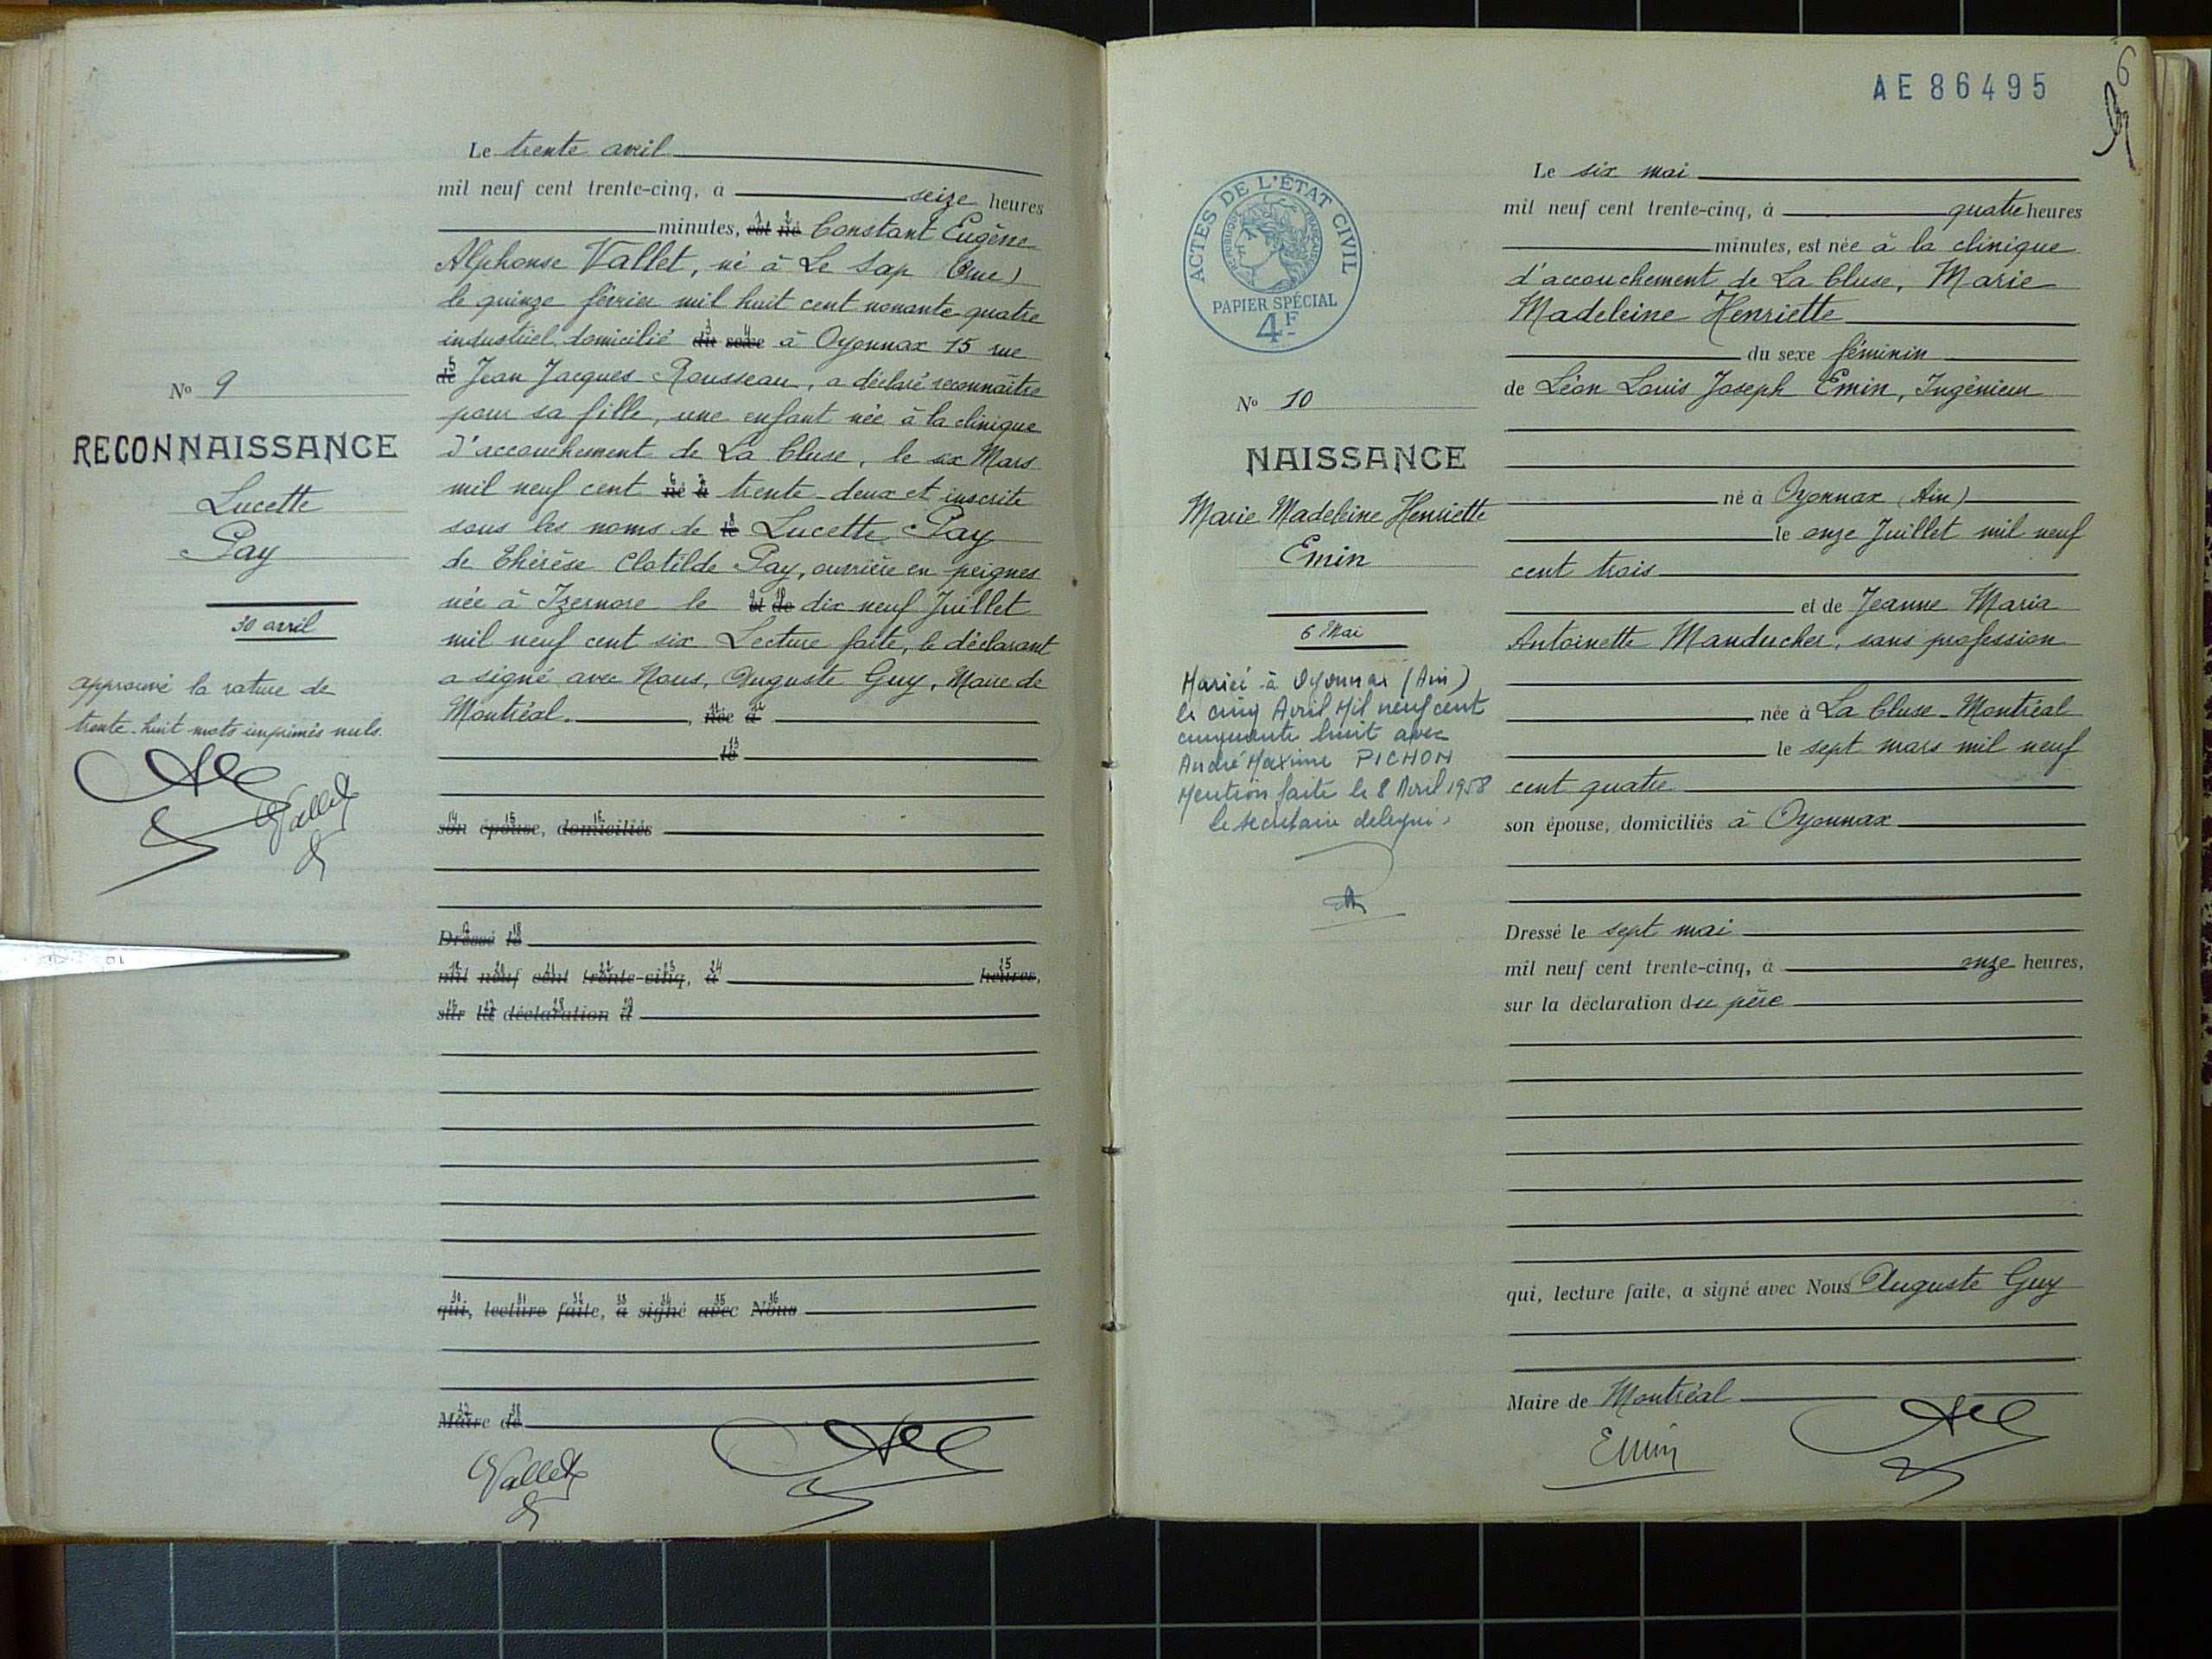 Le trente avril
mil neuf cent trente-cinq, à seize heures
minutes, est né Constant Eugène
Alphonse Vallet, né à Le Sap (Orne)
le quinze février mil huit cent nonante quatre
industriel, domicilié du sexe à Oyonnax 15 rue
de Jean Jacques Rousseau, a déclaré reconnaître
pour sa fille, une enfant née à la clinique
d'accouchement de La Cluse, le six Mars
mil neuf cent né à trente-deux et inscrite
sous les noms de le Lucette Pay
de Thérèse Clotilde Pay, ouvrière en peignes
née à Izernore le et de dix neuf Juillet
mil neuf cent six. Lecture faite, le déclarant
a signé avec Nous, Auguste Guy, Maire de
Montréal. , née à
le
son épouse, domiciliés
Dressé le
mil neuf cent trente-cinq, à heures,
sur la déclaration d
qui, lecture faite, a signé avec Nous
Maire de
Vallet
No 9
RECONNAISSANCE
Lucette
Pay
30 avril
approuvé la rature de
trente-huit mots imprimés nuls.
Vallet
AE86495
6
ACTES DE L'ÉTAT CIVIL
RÉPUBLIQUE FRANÇAISE
PAPIER SPÉCIAL
4F
No 10
NAISSANCE
Marie Madeleine Henriette
Emin
6 Mai
Mariée à Oyonnax (Ain)
le cinq Avril Mil neuf cent
cinquante huit avec
André Maxime PICHON
Mention faite le 8 Avril 1958
le secrétaire délégué.
Le six mai
mil neuf cent trente-cinq, à quatre heures
minutes, est née à la clinique
d'accouchement de La Cluse, Marie
Madeleine Henriette
du sexe féminin
de Léon Louis Joseph Emin, Ingénieur
né à Oyonnax (Ain)
le onze Juillet mil neuf
cent trois
et de Jeanne Maria
Antoinette Manducher, sans profession
, née à La Cluse-Montréal
le sept mars mil neuf
cent quatre
son épouse, domiciliés à Oyonnax
Dressé le sept mai
mil neuf cent trente-cinq, à onze heures,
sur la déclaration du père
qui, lecture faite, a signé avec Nous Auguste Guy
Maire de Montréal
Emin